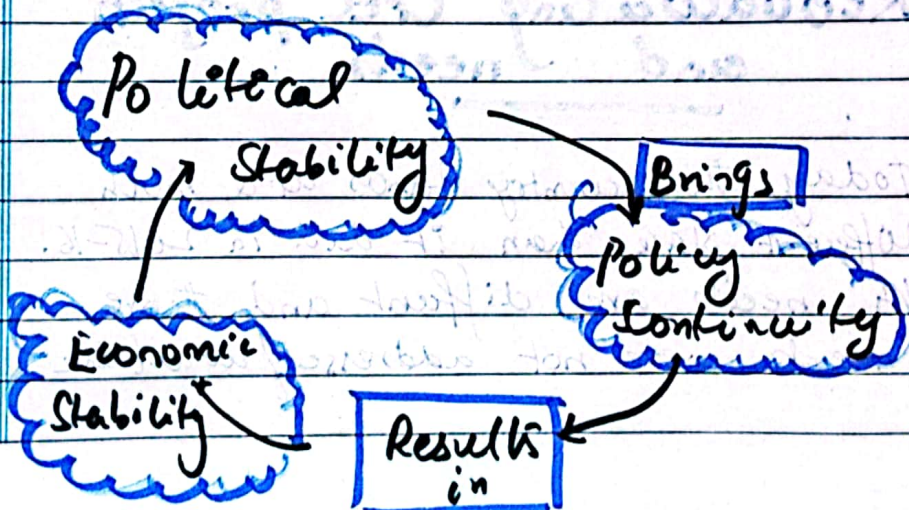 Political
Stability
Brings
Policy
Continuity
Results
in
Economic
Stability